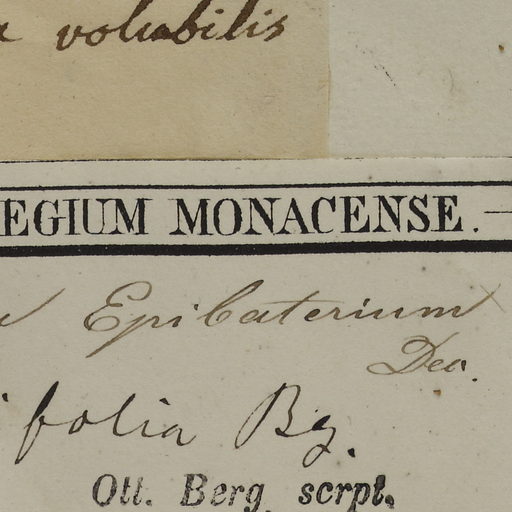 volubilis
EGIUM MONACENSE.
Epibaterium
Dec.
ifolia Bg.
Ott. Berg scrpt.